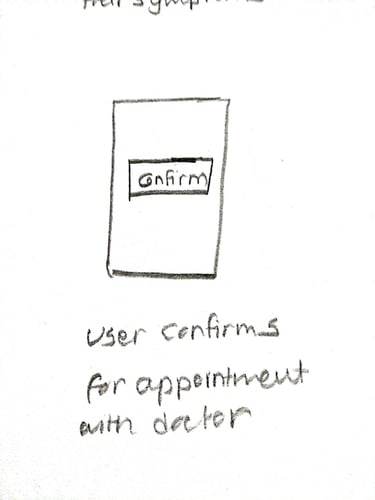 their symptoms
Confirm
User confirms
for appointment
with doctor